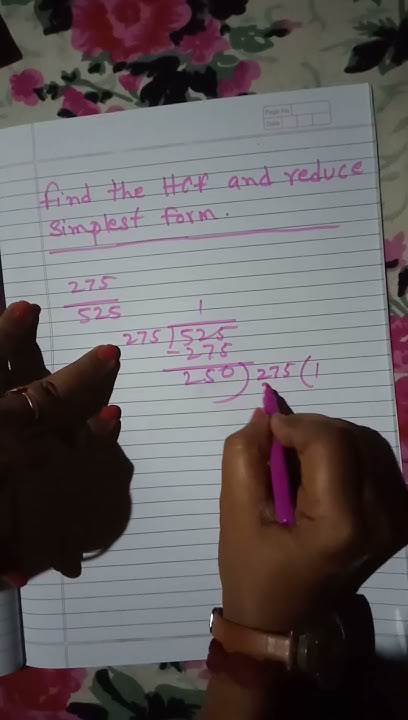 Page No.
Date
find the HCF and reduce
simplest form.
275
525
1
275 ) 525
- 275
250 ) 275 ( 1
2